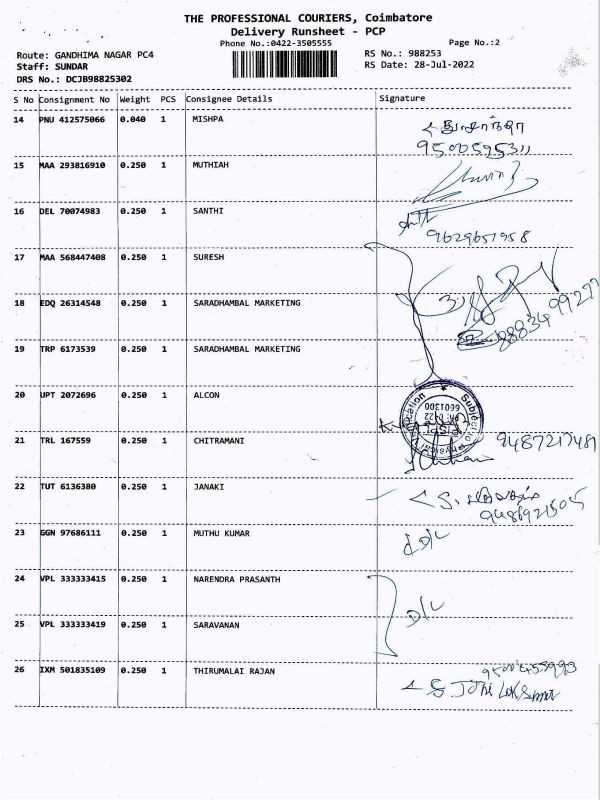 THE PROFESSIONAL COURIERS, Coimbatore
Delivery Runsheet - PCP
Phone No.:0422-3505555 Page No.:2
Route: GANDHIMA NAGAR PC4 RS No.: 988253
Staff: SUNDAR RS Date: 28-Jul-2022
DRS No.: DCJB98825302
S No Consignment No Weight PCS Consignee Details Signature
14 PNU 412575066 0.040 1 MISHPA
15 MAA 293816910 0.250 1 MUTHIAH
16 DEL 70074983 0.250 1 SANTHI
9629657958
17 MAA 568447408 0.250 1 SURESH
18 EDQ 26314548 0.250 1 SARADHAMBAL MARKETING
19 TRP 6173539 0.250 1 SARADHAMBAL MARKETING
20 UPT 2072696 0.250 1 ALCON
6601300
21 TRL 167559 0.250 1 CHITRAMANI
9487217481
22 TUT 6136380 0.250 1 JANAKI
23 GGN 97686111 0.250 1 MUTHU KUMAR
D/L
24 VPL 333333415 0.250 1 NARENDRA PRASANTH
D/L
25 VPL 333333419 0.250 1 SARAVANAN
26 IXM 501835109 0.250 1 THIRUMALAI RAJAN